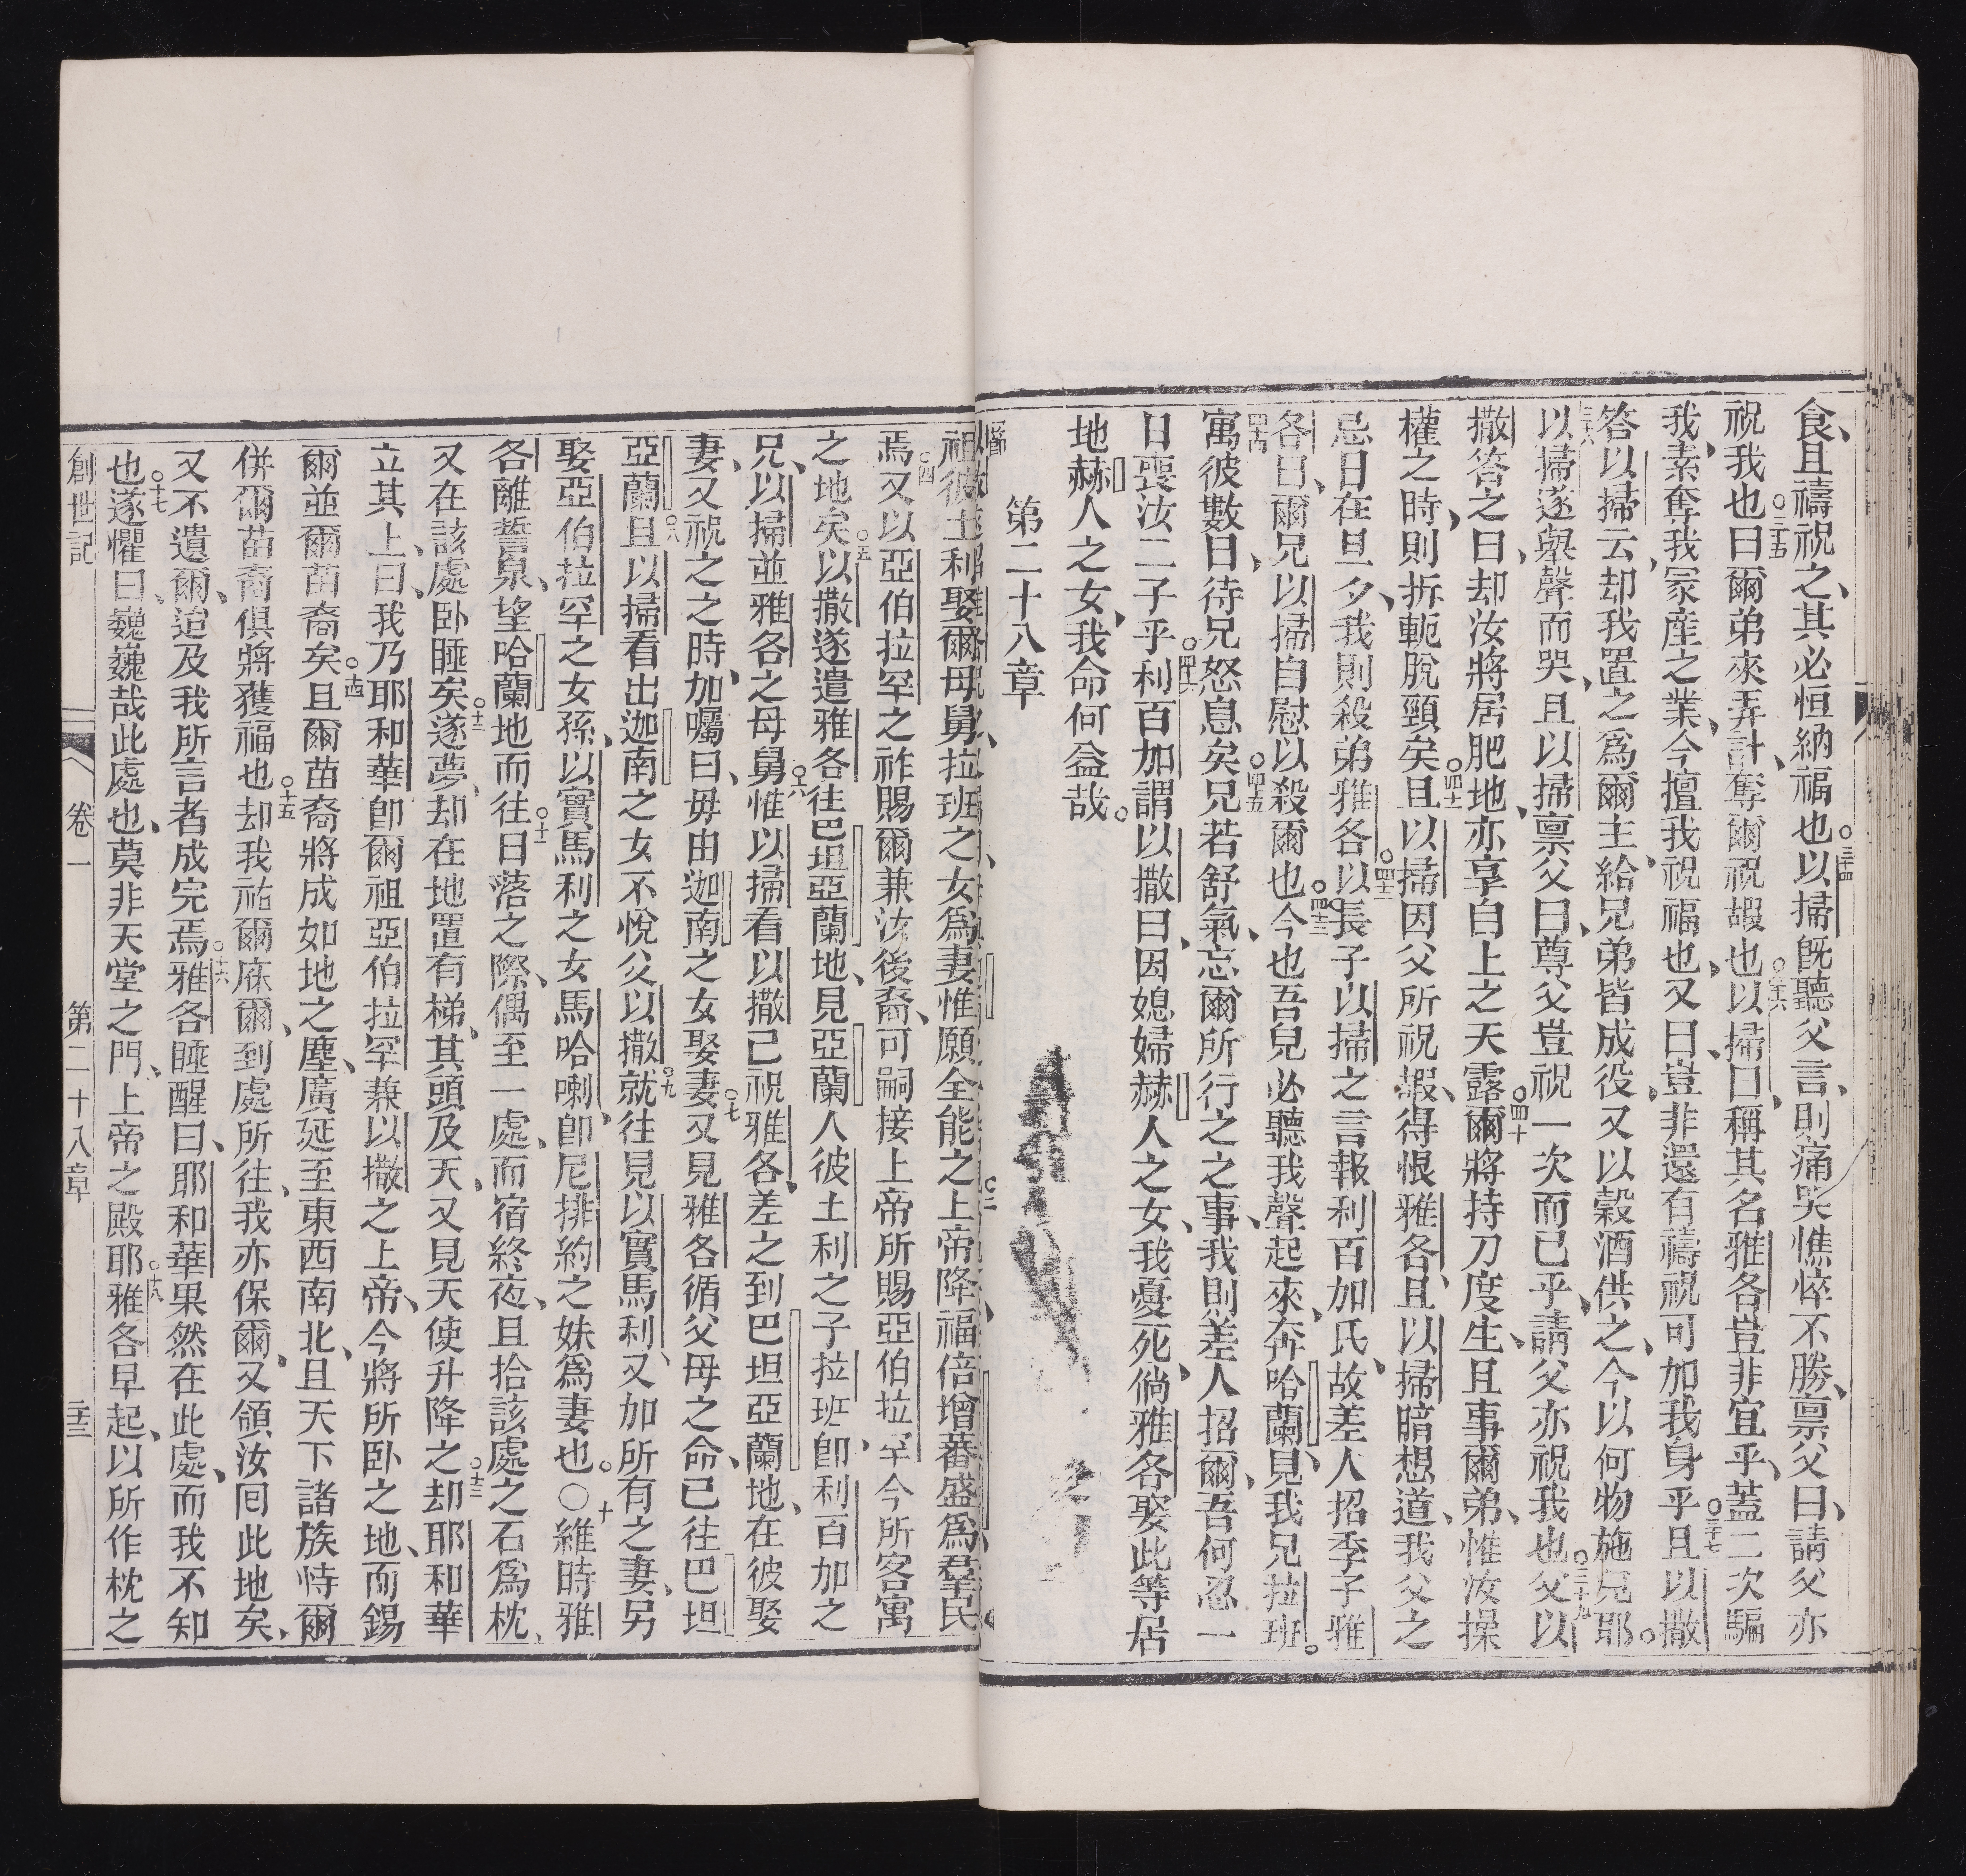 食、且禱祝之、其必恒納福也○三十四以掃旣聽父言、則痛哭憔悴不勝、禀父曰、請父亦
祝我也○三十五曰爾弟來弄計、奪爾祝嘏也○三十六以掃曰、稱其名雅各豈非宜乎、蓋二次騙
我、素奪我冢產之業、今擅我祝福也、又曰、豈非還有禱祝可加我身乎○三十七且以撒
答以掃云、却我置之爲爾主、給兄弟皆成役、又以穀酒供之、今以何物施兄耶。
以掃遂舉聲而哭、且以掃禀父曰、尊父豈祝一次而已乎、請父亦祝我也○三十九父以
撒答之曰、却汝將居肥地、亦享自上之天露○四十爾將持刀度生、且事爾弟、惟汝操
權之時、則拆軛脫頸矣○四十一且以掃因父所祝嘏、得恨雅各、且以掃暗想道、我父之
忌日在旦夕、我則殺弟雅各○四十二以長子以掃之言報利百加氏、故差人招季子雅
各曰、爾兄以掃自慰以殺爾也○四十三今也吾兒必聽我聲起來、奔哈蘭見我兄拉班。
四十四寓彼數日、待兄怒息矣○四十五兄若舒氣、忘爾所行之事、我則差人招爾、吾何忍一
日喪汝二子乎○四十六利百加謂以撒曰、因媳婦赫人之女、我憂死、倘雅各娶此等居
地赫人之女、我命何益哉。
第二十八章
祖彼土利娶爾母舅拉班之女爲妻惟願全能之上帝降福倍增蕃盛爲羣民
焉○四又以亞伯拉罕之祚賜爾兼汝後裔、可嗣接上帝所賜亞伯拉罕今所客寓
之地矣○五以撒遂遣雅各往巴坦亞蘭地、見亞蘭人彼土利之子拉班、卽利百加之
兄、以掃並雅各之母舅○六惟以掃看以撒已祝雅各、差之到巴坦亞蘭地、在彼娶
妻、又祝之之時、加囑曰、毋由迦南之女娶妻○七又見雅各循父母之命、已往巴坦
亞蘭○八且以掃看出迦南之女不悅父以撒○九就往見以實馬利、又加所有之妻、另
娶亞伯拉罕之女孫、以實馬利之女馬哈喇、卽尼排約之妹爲妻也。○十維時雅
各離誓泉、望哈蘭地而往○十一日落之際、偶至一處、而宿終夜、且拾該處之石爲枕、
又在該處卧睡矣○十二遂夢、却在地置有梯、其頭及天、又見天使升降之○十三却耶和華
立其上、曰、我乃耶和華卽爾祖亞伯拉罕兼以撒之上帝、今將所卧之地、而錫
爾並爾苗裔矣○十四且爾苗裔將成如地之塵、廣延至東西南北、且天下諸族恃爾
併爾苗裔俱將獲福也○十五却我祐爾庥爾、到處所往、我亦保爾、又領汝囘此地矣、
又不遺爾、迨及我所言者成完焉○十六雅各睡醒曰、耶和華果然在此處、而我不知
也○十七遂懼曰、巍巍哉此處也、莫非天堂之門、上帝之殿耶○十八雅各早起、以所作枕之
創世記 卷一 第二十八章 三十三